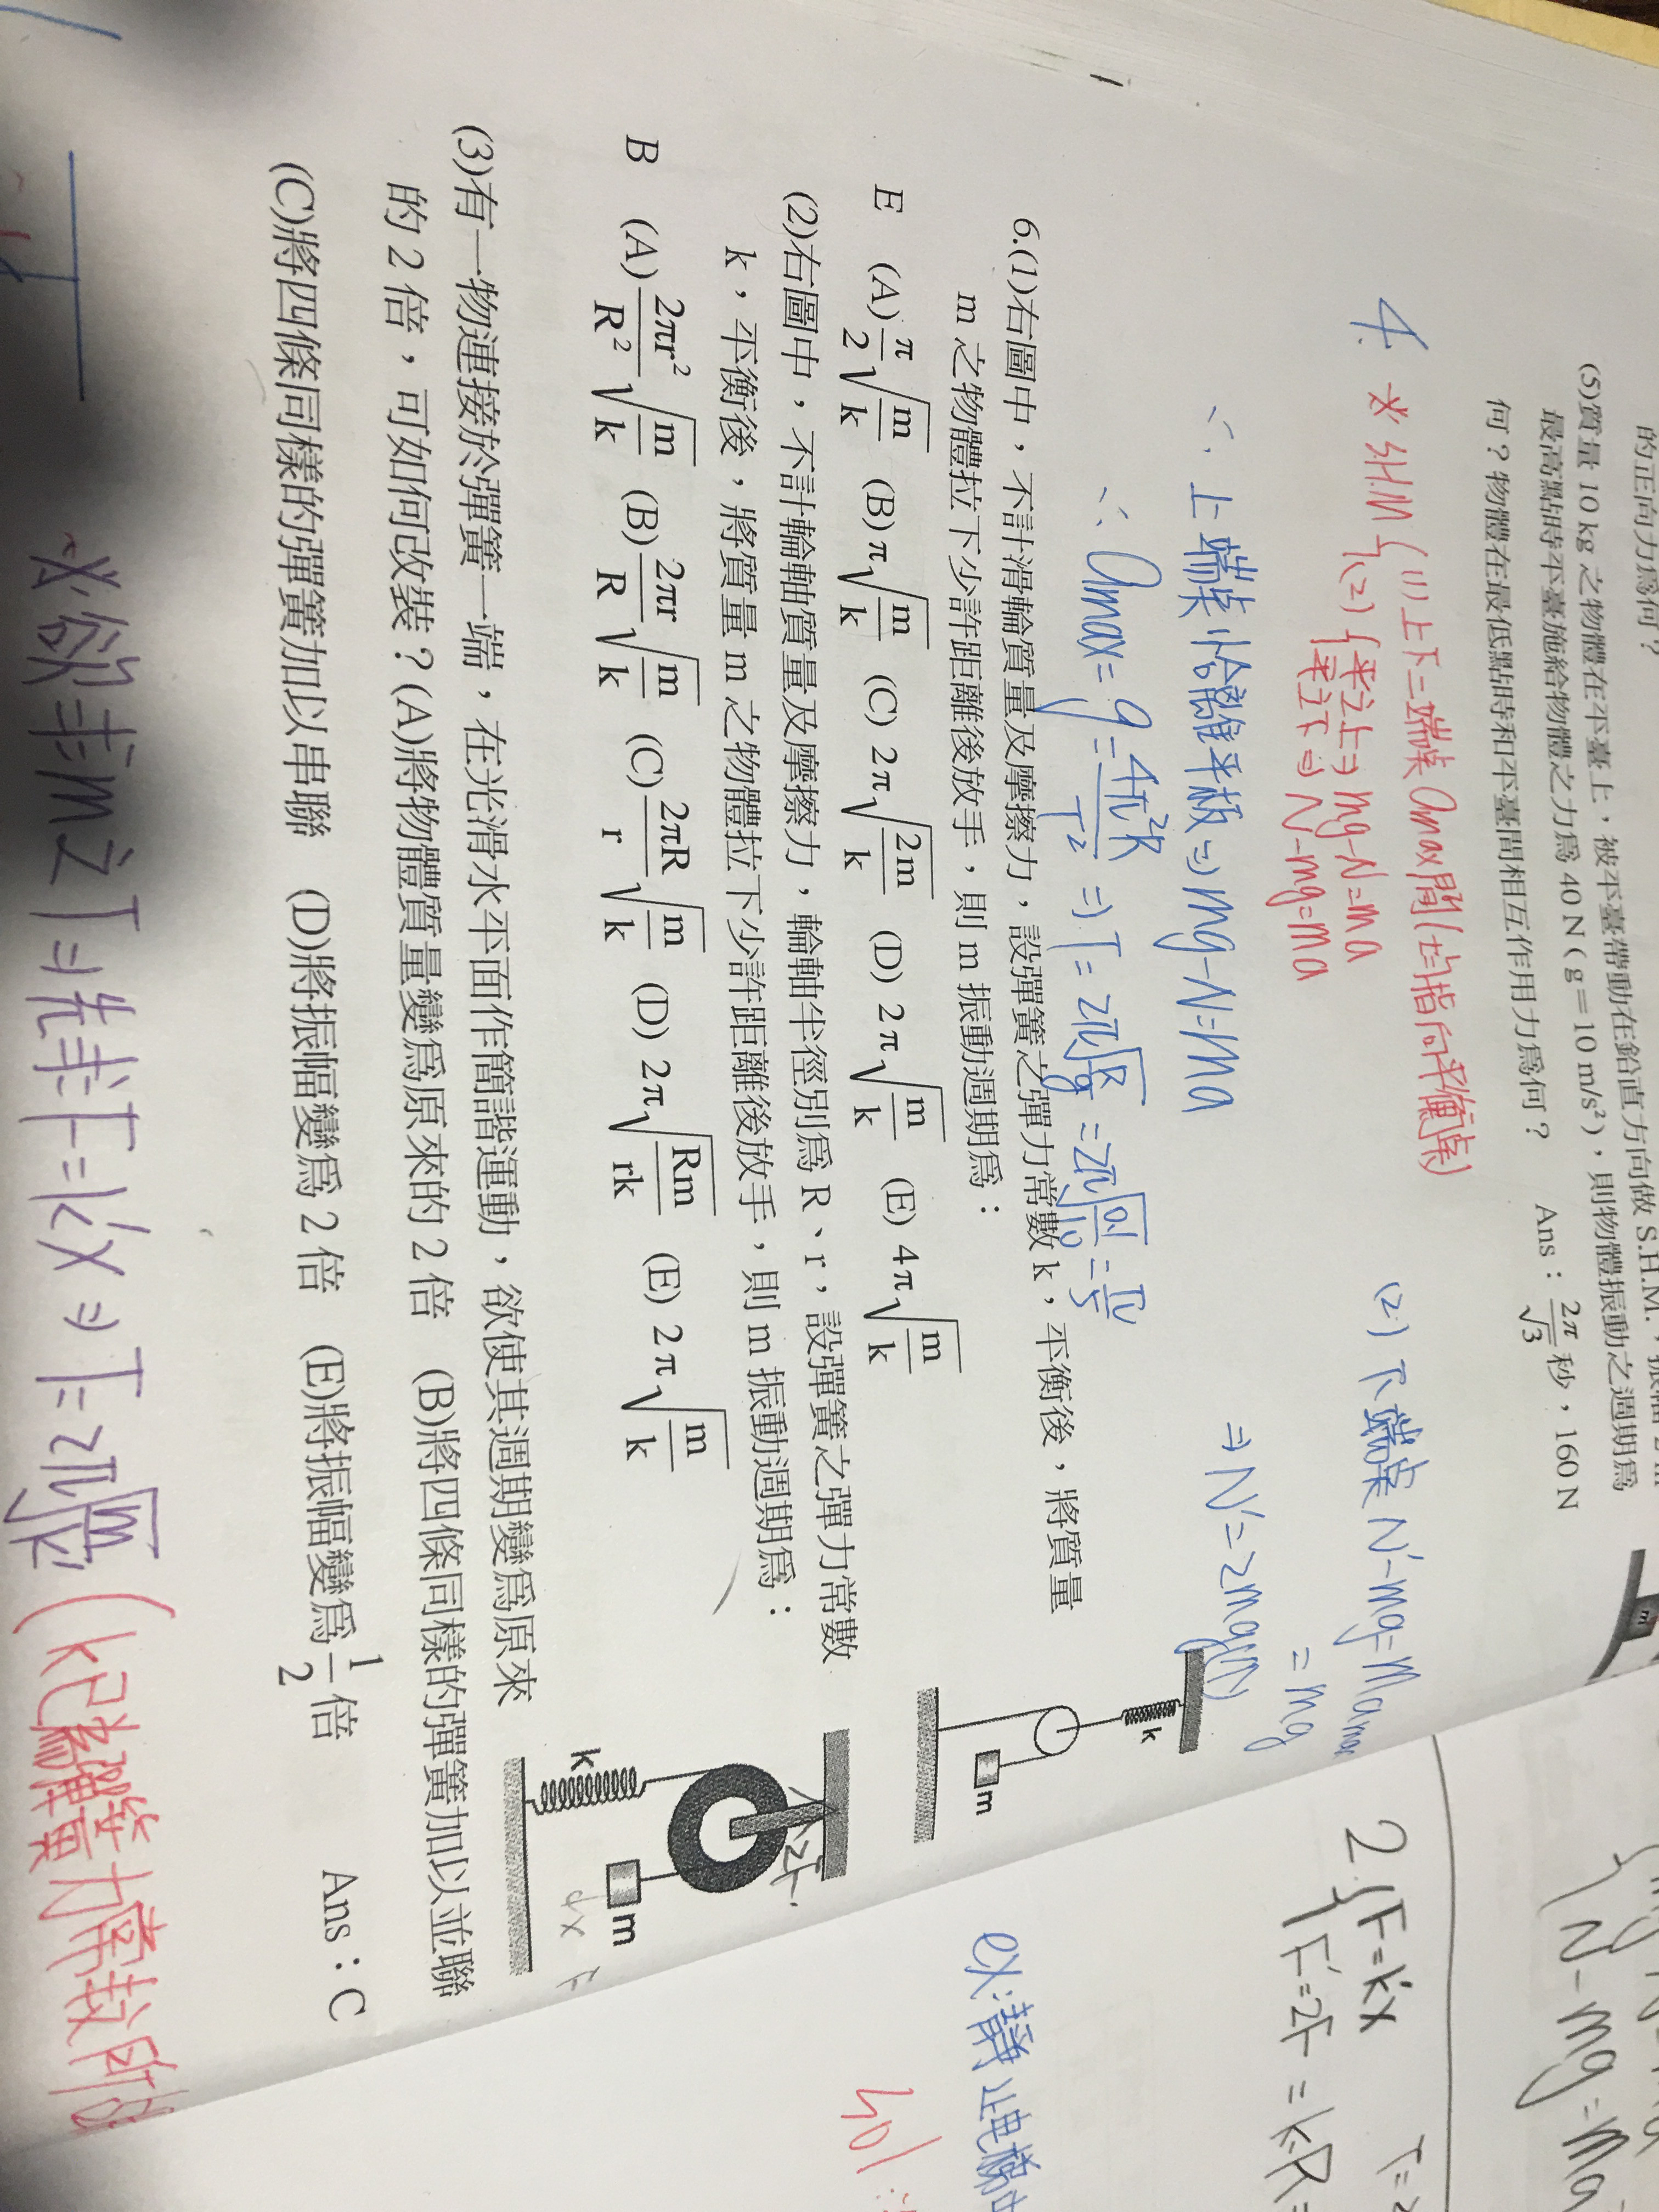 的正向力為何？
(5)質量 10 kg 之物體在平臺上，被平臺帶動在鉛直方向做 S.H.M.，振幅 2 m
最高點時平臺施給物體之力為 40 N ( g＝10 m/s² )，則物體振動之週期為
何？物體在最低點時和平臺間相互作用力為何？ Ans：2π/√3 秒，160 N
m
4. * S.H.M { (1) 上下二端點 amax 間(±指向平衡點)
(2) { 平之上⇒ mg-N=ma
平之下⇒ N-mg=ma
∵ 上端點恰離平板⇒mg-N=ma
∴ amax = g = 4π²R/T² ⇒ T = 2π√(R/g) = 2π√(0.1/10) = π/5
(2) 下端點 N'-mg=mamax
= mg
⇒ N'=2mg
6.(1)右圖中，不計滑輪質量及摩擦力，設彈簧之彈力常數 k，平衡後，將質量
m 之物體拉下少許距離後放手，則 m 振動週期為：
E (A) π/2 √(m/k) (B) π√(m/k) (C) 2π√(2m/k) (D) 2π√(m/k) (E) 4π√(m/k)
k
m
(2)右圖中，不計輪軸質量及摩擦力，輪軸半徑別為 R、r，設彈簧之彈力常數
k，平衡後，將質量 m 之物體拉下少許距離後放手，則 m 振動週期為：
B (A) 2πr²/R² √(m/k) (B) 2πr/R √(m/k) (C) 2πR/r √(m/k) (D) 2π√(Rm/rk) (E) 2π√(m/k)
k
m
2F
dx
F
(3)有一物連接於彈簧一端，在光滑水平面作簡諧運動，欲使其週期變為原來
的 2 倍，可如何改裝？(A)將物體質量變為原來的 2 倍 (B)將四條同樣的彈簧加以並聯
(C)將四條同樣的彈簧加以串聯 (D)將振幅變為 2 倍 (E)將振幅變為 1/2 倍 Ans：C
*欲求m之T⇒先求F=k'x⇒T=2π√(m/k')
(k已為彈簧力常數所
2 { F=k'x
F'=2F = k·R=
N-mg=ma
ex:靜止電梯中
sol: